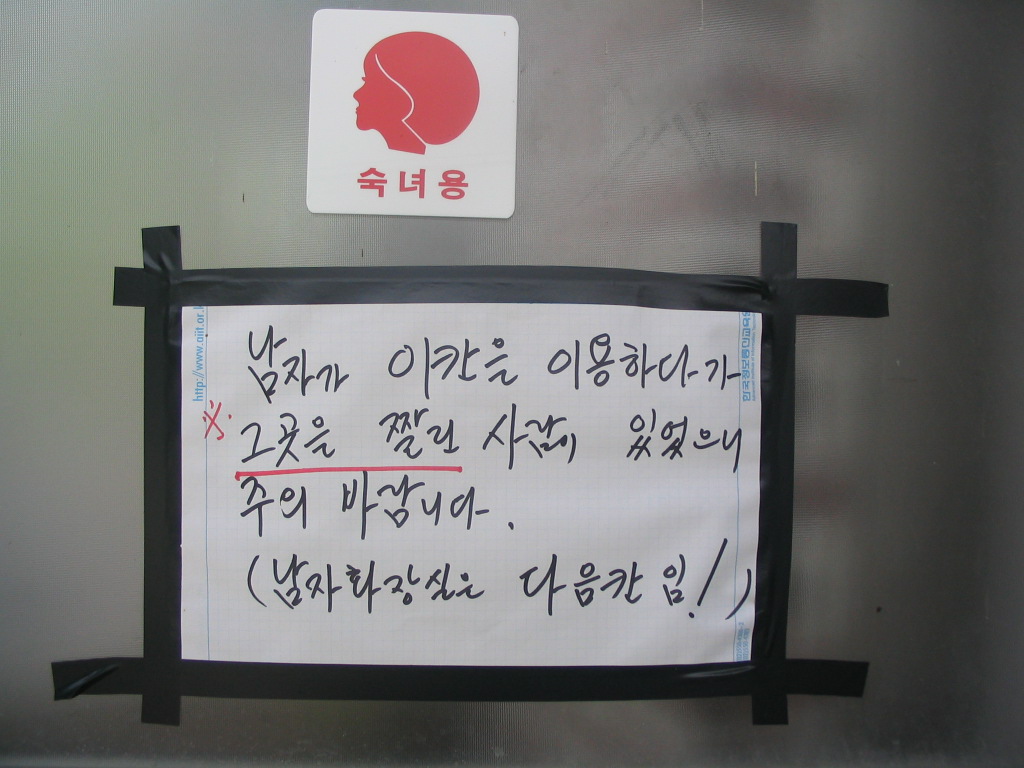 숙녀용
남자가 이칸을 이용하다가
※ 그곳을 짤린 사람이 있었으니
주의 바랍니다.
(남자화장실은 다음칸 임!)
http://www.oiit.or.k
한국정보통신교육원